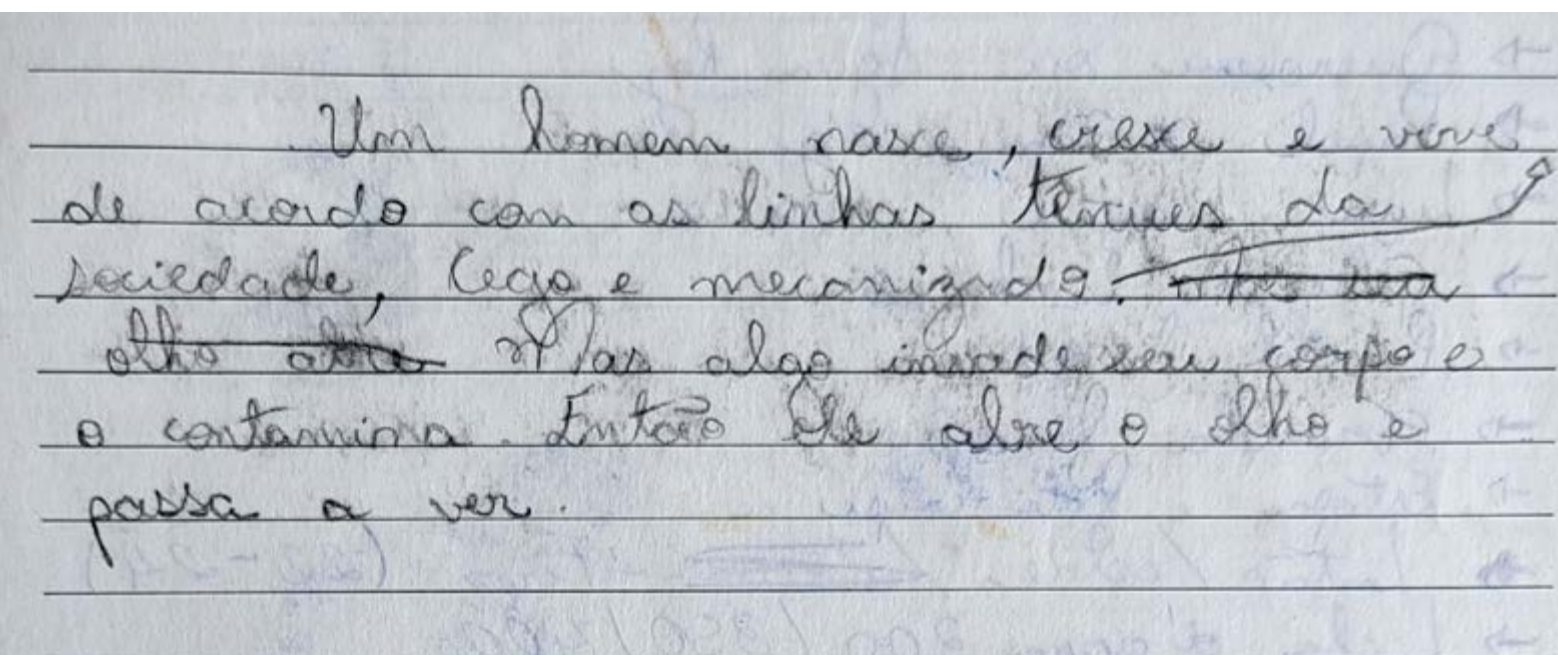 Um homem nasce, cresce e vive
de acordo com as linhas tênues da
sociedade, cego e mecanizado.
Mas algo invade seu corpo e
o contamina. Então ele abre o olho e
passa a ver.